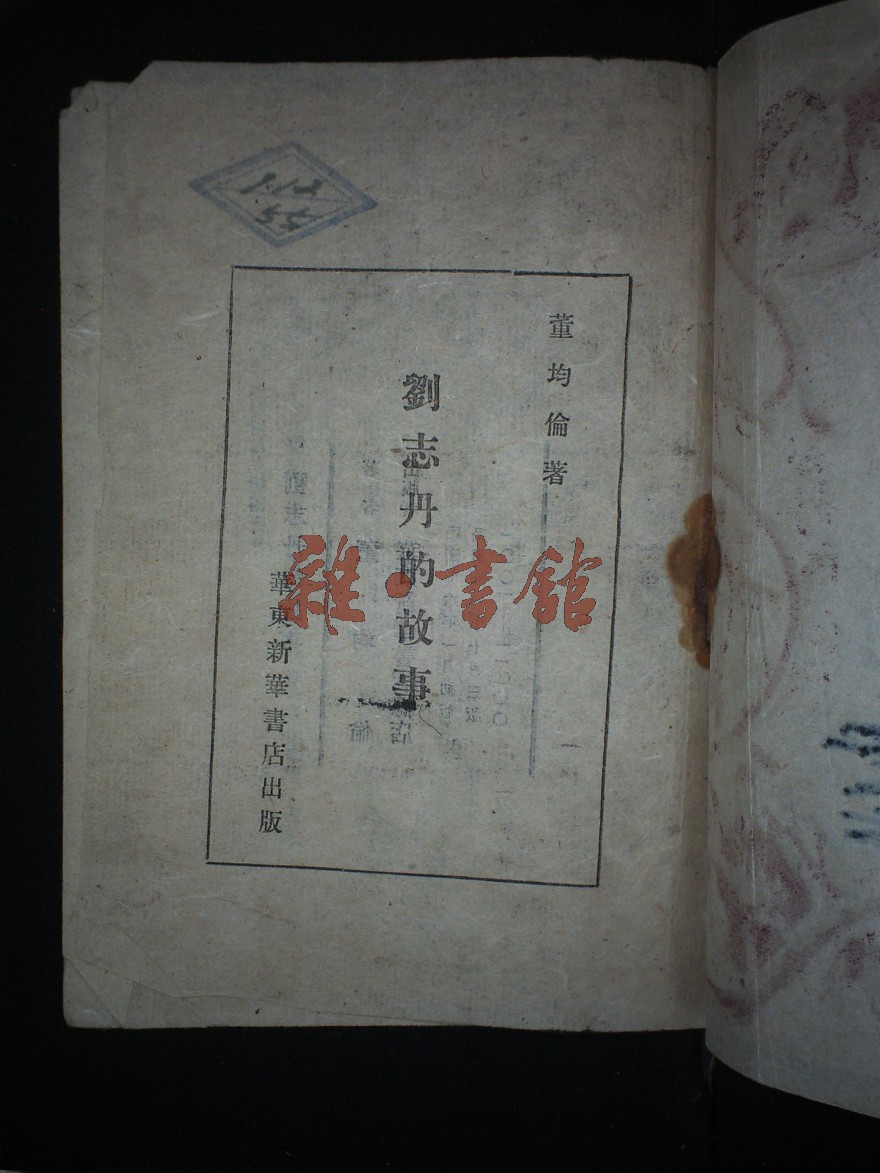 董均倫著
劉志丹的故事
華東新華書店出版
雜·書館